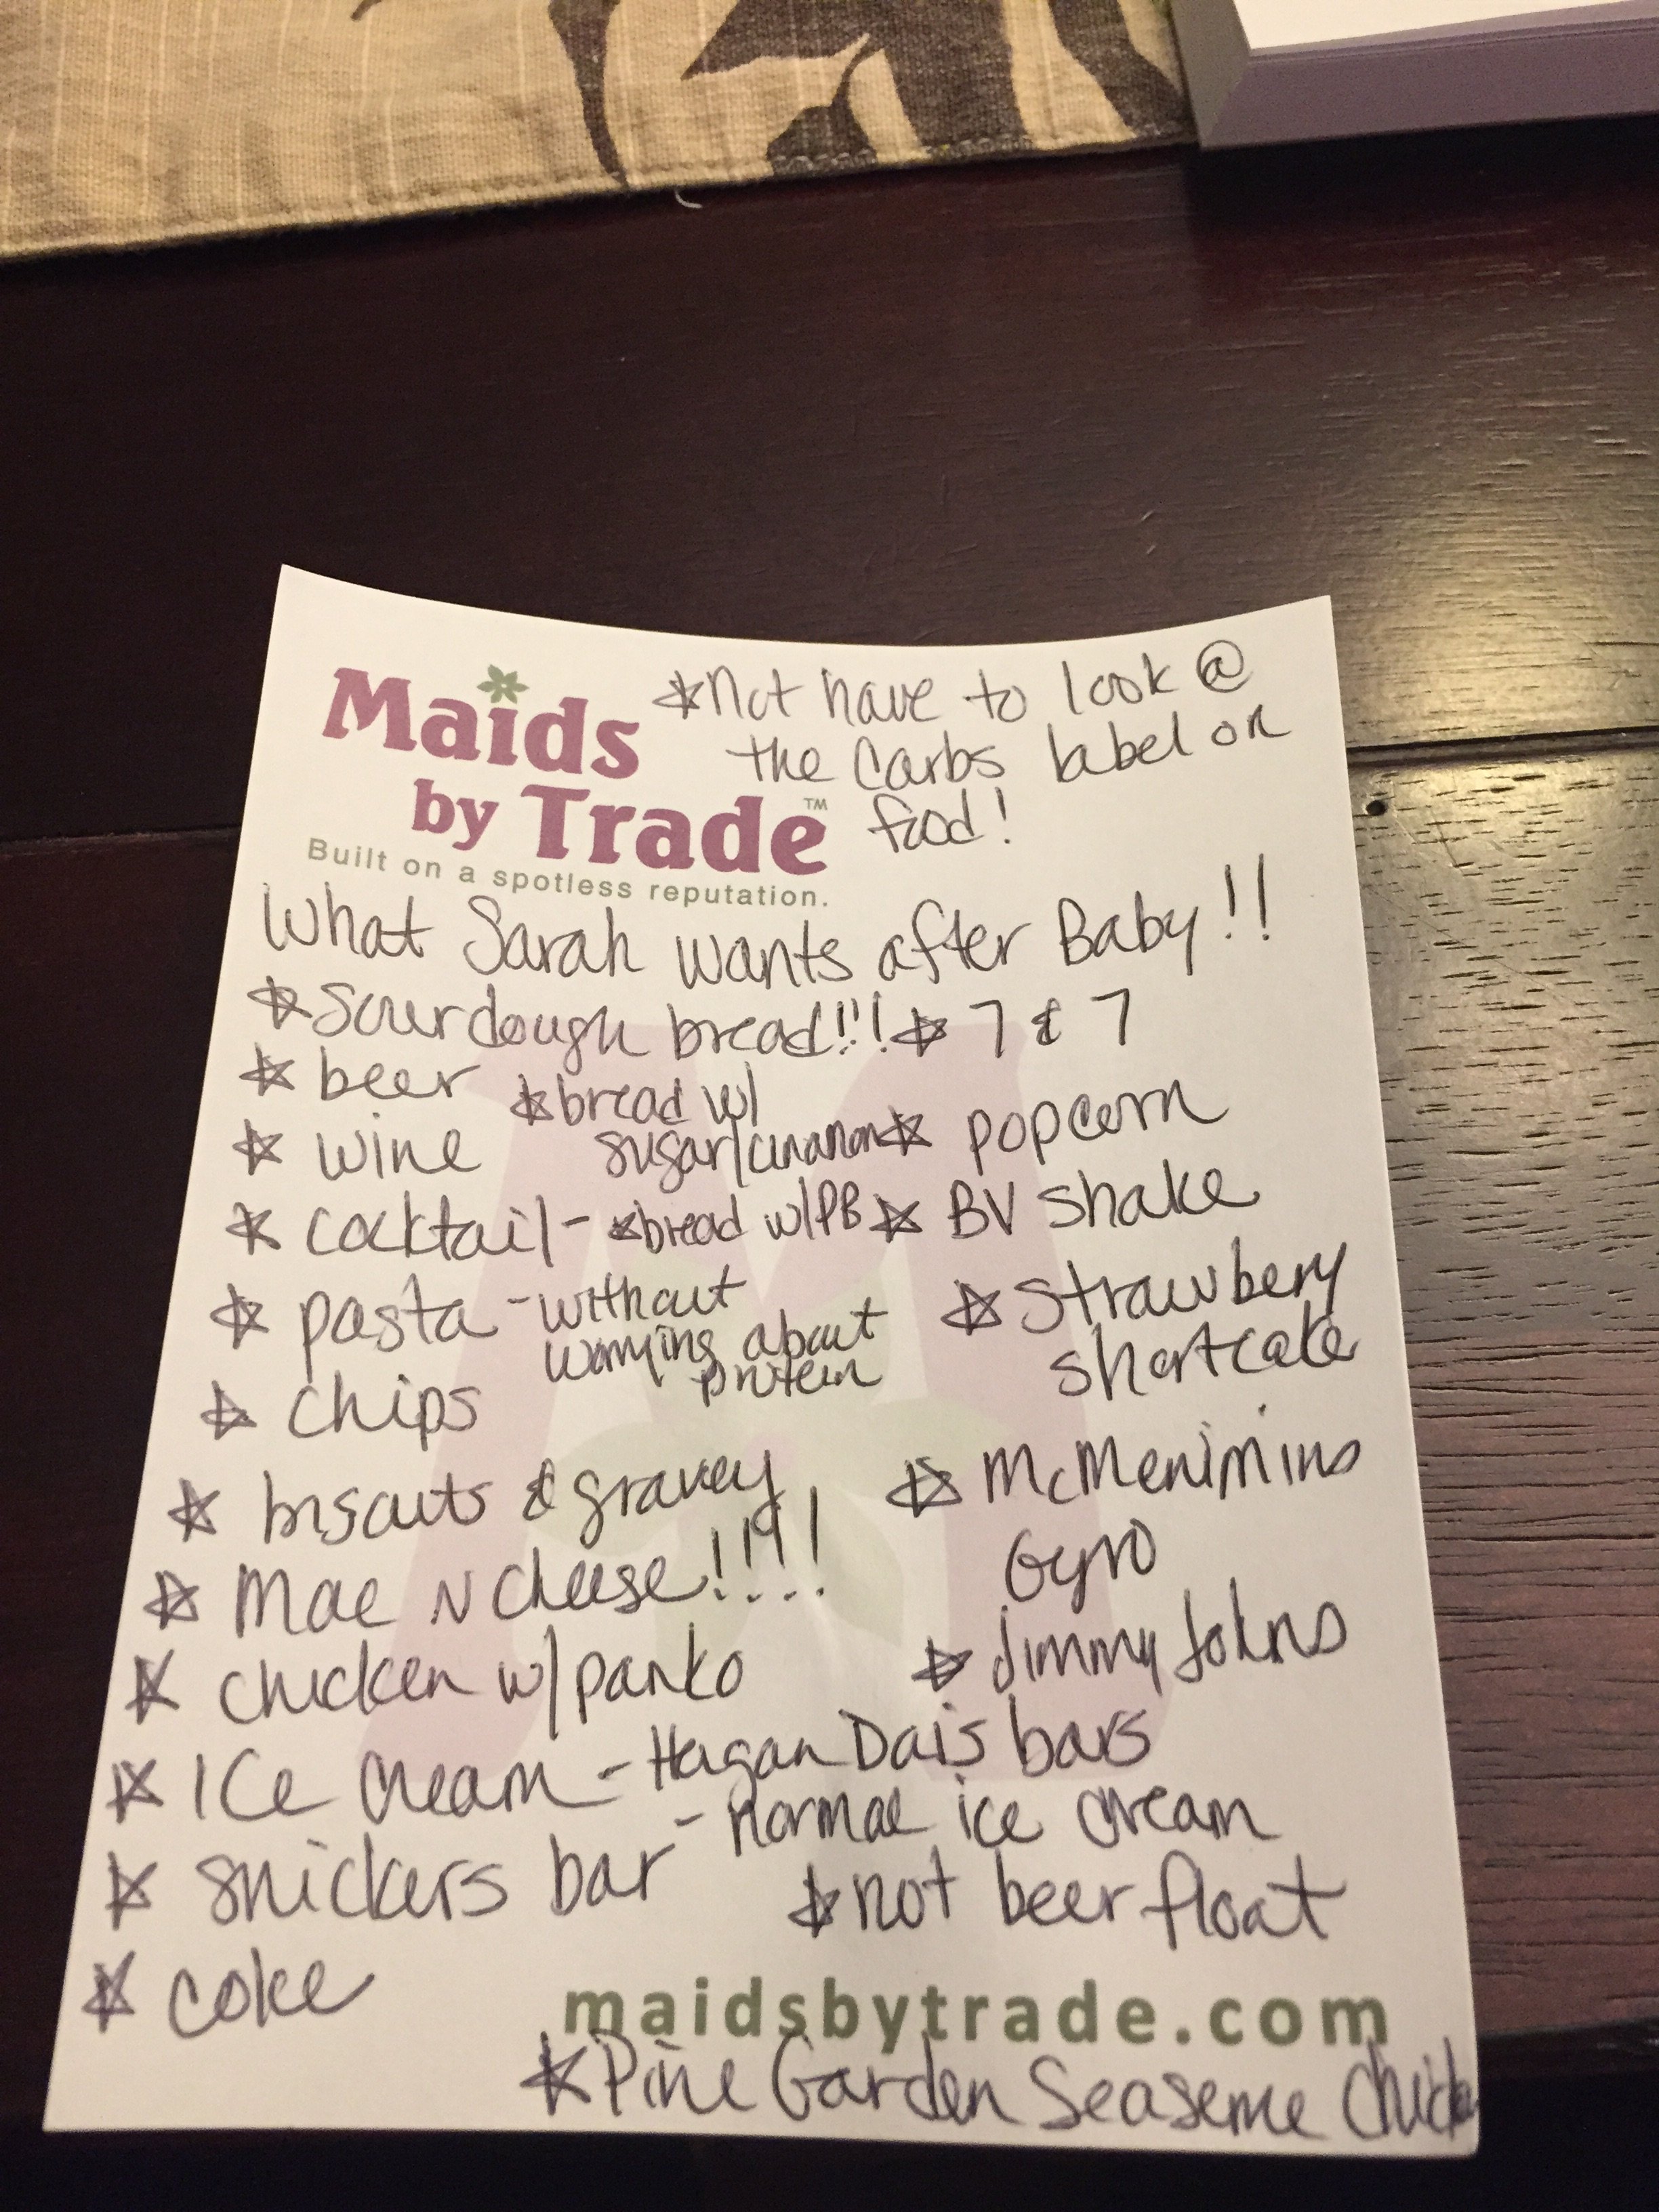 Maids
by Trade™
Built on a spotless reputation.
*not have to look @
the carbs label on
food!
What Sarah wants after Baby!!
*Sourdough bread!!!
* beer
* wine
* cocktail -
* pasta - without
worrying about
protein
* chips
* biscuits & gravey
* Mac N Cheese!!!!
* chicken w/ panko
* Ice cream - Hagan Dais bars
- normal ice cream
* snickers bar
* coke
*bread w/
sugar/cinamon
*bread w/PB
* 7 & 7
* popcorn
* BV shake
* Strawbery
shortcake
* McMenimins
Gyro
* Jimmy Johns
*not beer float
maidsbytrade.com
*Pine Garden Seaseme